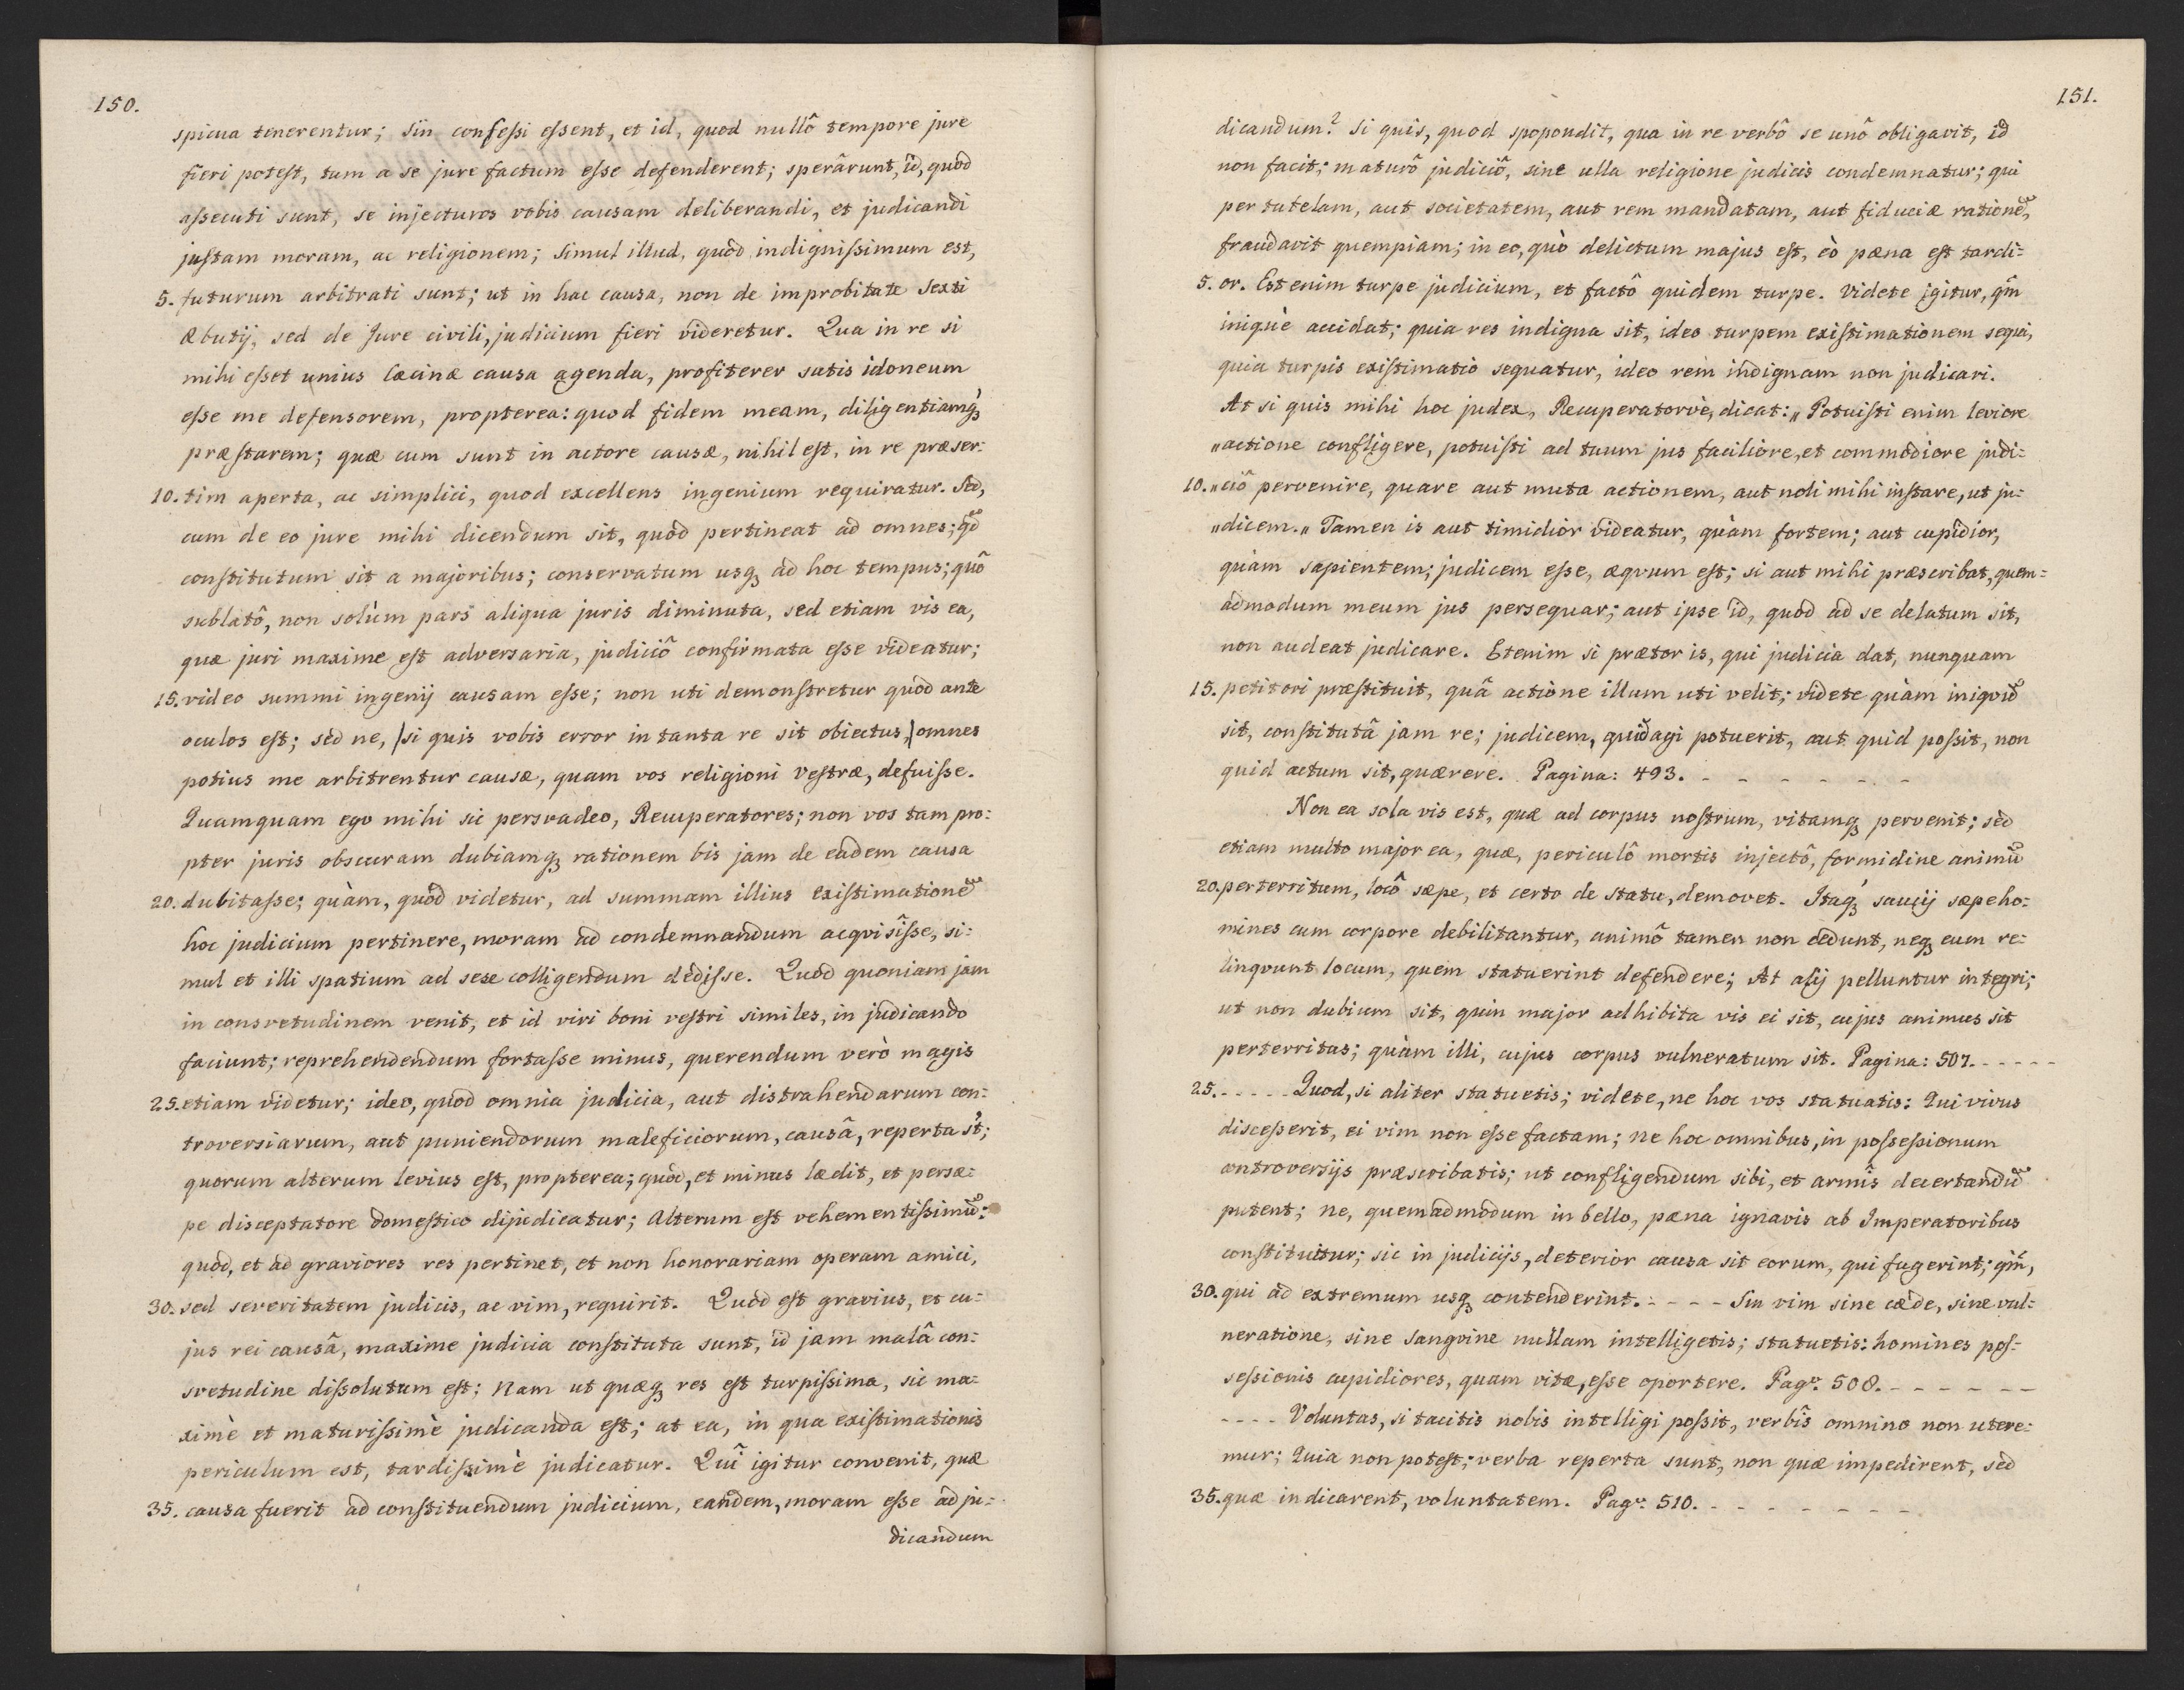 150.
spicua tenerentur; sin confeſsi eſsent, et id, quod nullô tempore jure
fieri poteſt, tum a se jure factum eſse defenderent; sperârunt, id, quod
aſsecuti sunt, se injecturos vobis causam deliberandi, et judicandi
juſtam moram, ac religionem; simul illud, quòd indigniſsimum est,
5. futurum arbitrati sunt; ut in hac causa, non de improbitate Sexti
Æbutij, sed de Jure civili, judicium fieri videretur. Qua in re si
mihi eſset unius Cæcinæ causa agenda, profiterer satis idoneum
eſse me defensorem, propterea: quod fidem meam, diligentiamqꝫ
præſtarem; quæ cum sunt in actore causæ, nihil eſt, in re præser:
10. tim aperta, ac simplici, quod excellens ingenium requiratur. Sed,
cum de eo jure mihi dicendum sit, quòd pertineat ad omnes; qd̃
conſtitutum sit a majoribus; conservatum usqꝫ ad hoc tempus; quô
sublatô, non solùm pars aliqua juris diminuta, sed etiam vis ea,
quæ juri maxime eſt adversaria, judiciô confirmata eſse videatur;
15. video summi ingenij causam eſse; non uti demonſtretur quòd ante
oculos eſt; sèd ne, /si quis vobis error in tanta re sit obiectus,/ omnes
potius me arbitrentur causæ, quam vos religioni veſtræ, defuiſse.
Quamquam ego mihi sic persvadeo, Recuperatores; non vos tam pro:
pter juris obscuram dubiamqꝫ rationem bis jam de eadem causa
20. dubitaſse; quàm, quòd videtur, ad summam illius exiſtimationẽ
hoc judicium pertinere, moram ad condemnandum acqvisîſse, si:
mul et illi spatium ad sese colligendum dediſse. Quòd quoniam jam
in consvetudinem venit, et id viri boni veſtri similes, in judicando
faciunt; reprehendendum fortaſse minus, querendum verò magis
25. etiam videtur; ideo, quòd omnia judicia, aut distrahendarum con:
troversiarum, aut puniendorum maleficiorum, causâ, reperta st̃;
quorum alterum levius eſt, propterea; quòd, et minus lædit, et persæ:
pe disceptatore domeſtico dijudicatur; Alterum eſt vehementiſsimũ;
quòd, et ad graviores res pertinet, et non honorariam operam amici,
30. sed severitatem judicis, ac vim, requirit. Quòd eſt gravius, et cu:
jus rei causâ, maxime judicia conſtituta sunt, id jam malâ con:
svetudine diſsolutum eſt; Nam ut quæqꝫ res eſt turpiſsima, sic ma:
ximè et maturiſsimè judicanda eſt; at ea, in qua exiſtimationis
periculum est, tardiſsimè judicatur. Quî igitur convenit, quæ
35. causa fuerit ad conſtituendum judicium, eandem, moram eſse ad ju:
dicandum
151.
dicandum? Si quis, quod spopondit, qua in re verbô se unô obligavit, id
non facit; maturô judiciô, sine ulla religione judicis condemnatur; qui
per tutelam, aut societatem, aut rem mandatam, aut fiduciæ rationẽ,
fraudavit quempiam; in eo, quò delictum majus eſt, èò pæna eſt tardi:
5. or. Est enim turpe judicium, et factô quidem turpe. Videte igitur, qm̃
iniquè accidat; quia res indigna sit, ideo turpem exiſtimationem sequi,
quia turpis exiſtimatio sequatur, ideo rem indignam non judicari.
At si quis mihi hoc judex, Recuperatorvè, dicat: „Potuiſti enim leviore
„actione confligere, potuiſti ad tuum jus faciliore, et commodiore judi:
10. „ciô pervenire, quare aut muta actionem, aut noli mihi inſtare, ut ju:
„dicem.„ Tamen is aut timidior videatur, quàm fortem; aut cupidior,
quàm sapientem; judicem eſse, æqvum eſt; si aut mihi præscribat, quem:
admodum meum jus persequar; aut ipse id, quòd ad se delatum sit,
non audeat judicare. Etenim si prætor is, qui judicia dat, nunquam
15. petitori præſtituit, quâ actione illum uti velit; videte quàm iniqvũ
sit, conſtitutâ jam re; judicem, quid agi potuerit, aut quid poſsit, non
quid actum sit, quærere. Pagina: 493. - - - - - - -
Non ea sola vis est, quæ ad corpus noſtrum, vitamqꝫ pervenit; sèd
etiam multo major ea, quæ, periculô mortis injectô, formidine animũ
20. perterritum, locô sæpe, et certo de statu, demovet. Itaqꝫ saucij sæpe ho:
mines cum corpore debilitantur, animô tamen non cedunt, neqꝫ eum re:
linqvunt locum, quem statuerint defendere; At alij pelluntur integri;
ut non dubium sit, quin major adhibita vis ei sit, cujus animus sit
perterritus; quàm illi, cujus corpus vulneratum sit. Pagina: 507. - - - - -
25. - - - - - Quod, si aliter statuetis; videte, ne hoc vos statuatis: Qui vivus
disceſserit, ei vim non eſse factam; ne hoc omnibus, in poſseſsionum
controversijs præscribatis; ut confligendum sibi, et armîs decertandũ
putent; ne, quemadmodum in bello, pæna ignavis ab Imperatoribus
conſtituitur; sic in judicijs, deterior causa sit eorum, qui fugerint; qm̃,
30. qui ad extremum usqꝫ contenderint. - - - - Sin vim sine cæde, sine vul:
neratione, sine sangvine nullam intelligetis; statuetis: homines poſ:
seſsionis cupidiores, quam vitæ, eſse oportere. Pagᵃ: 508. - - - - - -
- - - - Voluntas, si tacitis nobis intelligi poſsit, verbîs omnino non utere:
mur; Quia non poteſt; verba reperta sunt, non quæ impedirent, sèd
35. quæ indicarent, voluntatem. Pagᵃ: 510. - - - - - - -